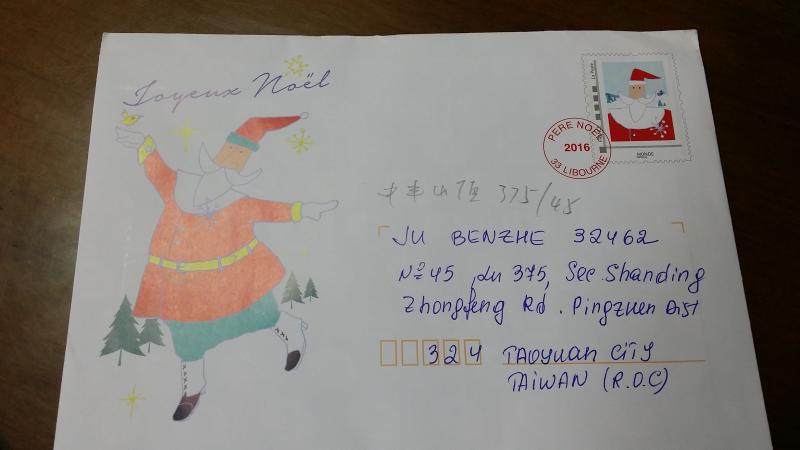 Joyeux Noël
La Poste
MONDE
PERE NOËL
2016
33 LIBOURNE
中丰山顶 375/45
JU BENZHE 32462
Nº45, Ln 375, Sec Shanding
Zhongfeng Rd. Pingzhen Dist
324 TAOYUAN CITY
TAIWAN (R.O.C)